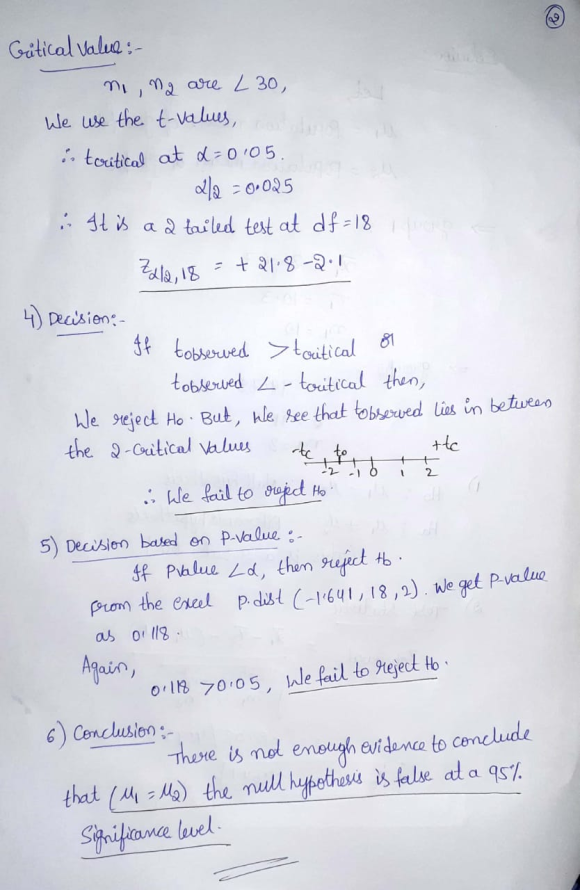 2
Critical Value :-
n₁, n₂ are ∠ 30,
We use the t-values,
∴ tcritical at α = 0.05.
α/2 = 0.025
∴ It is a 2 tailed test at df = 18
Zα/2, 18 = + 21.8 - 2.1
4) Decision :-
If tobserved > tcritical or
tobserved ∠ - tcritical then,
We reject Ho. But, We see that tobserved lies in between
the 2-Critical Values
-tc to +tc
-2 -1 0 1 2
∴ We fail to reject Ho
5) Decision based on P-value :-
If Pvalue ∠ α, then reject Ho.
From the excel p.dist (-1.641, 18, 2). We get P-value
as 0.118.
Again,
0.118 > 0.05, We fail to reject Ho.
6) Conclusion :-
There is not enough evidence to conclude
that (M₁ = M₂) the null hypothesis is false at a 95%.
Significance level.